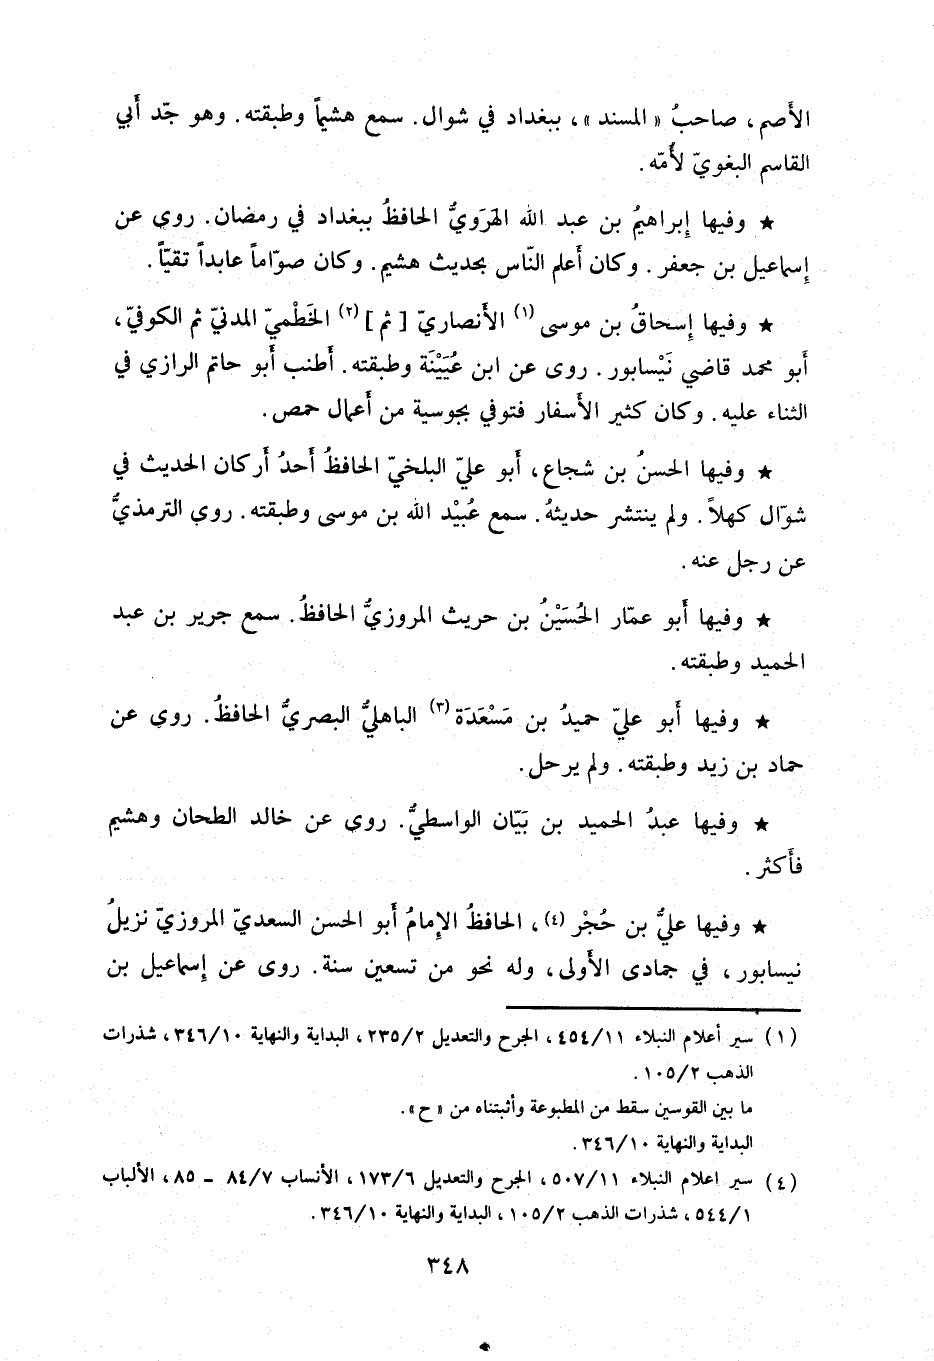 الأَصم، صاحبُ « المسند »، ببغداد في شوال. سمع هشيماً وطبقته. وهو جّد أَبي
القاسم البغويّ لأُمّه.
★ وفيها إِبراهيمُ بن عبد الله الهَرَويُّ الحافظُ ببغداد في رمضان. روى عن
إسماعيل بن جعفر. وكان أَعلم النّاس بحديث هشيم. وكان صوّاماً عابداً تقيّاً.
★ وفيها إِسحاقُ بن موسى (١) الأَنصاريّ [ ثم ] (٢) الخَطْميّ المدنيّ ثم الكوفيّ،
أَبو محمد قاضي نَيْسابور. روى عن ابن عُيَيْنَة وطبقته. أَطنب أَبو حاتم الرازي في
الثناء عليه. وكان كثير الأَسفار فتوفي بجوسية من أَعمال حمص.
★ وفيها الحسنُ بن شجاع، أَبو عليّ البلخيّ الحافظُ أَحدُ أَركان الحديث في
شوّال كهلاً. ولم ينتشر حديثهُ. سمع عُبيْد الله بن موسى وطبقته. روى الترمذيُّ
عن رجل عنه.
★ وفيها أَبو عمّار الحُسَيْنُ بن حريث المروزيُّ الحافظُ. سمع جرير بن عبد
الحميد وطبقته.
★ وفيها أَبو عليّ حميدُ بن مَسْعَدَة (٣) الباهليُّ البصريُّ الحافظُ. روى عن
حماد بن زيد وطبقته. ولم يرحل.
★ وفيها عبدُ الحميد بن بَيّان الواسطيُّ. روى عن خالد الطحان وهشيم
فأَكثر.
★ وفيها عليُّ بن حُجْر (٤)، الحافظُ الإِمامُ أَبو الحسن السعديّ المروزيّ نزيلُ
نيسابور، في جمادى الأَولى، وله نحو من تسعين سنة. روى عن إِسماعيل بن
(١) سير أعلام النبلاء ٤٥٤/١١، الجرح والتعديل ٢٣٥/٢، البداية والنهاية ٣٤٦/١٠، شذرات
الذهب ١٠٥/٢.
ما بين القوسين سقط من المطبوعة وأثبتناه من « ح ».
البداية والنهاية ٣٤٦/١٠.
(٤) سير اعلام النبلاء ٥٠٧/١١، الجرح والتعديل ١٧٣/٦، الأنساب ٨٤/٧ - ٨٥، الألباب
٥٤٤/١، شذرات الذهب ١٠٥/٢، البداية والنهاية ٣٤٦/١٠.
٣٤٨